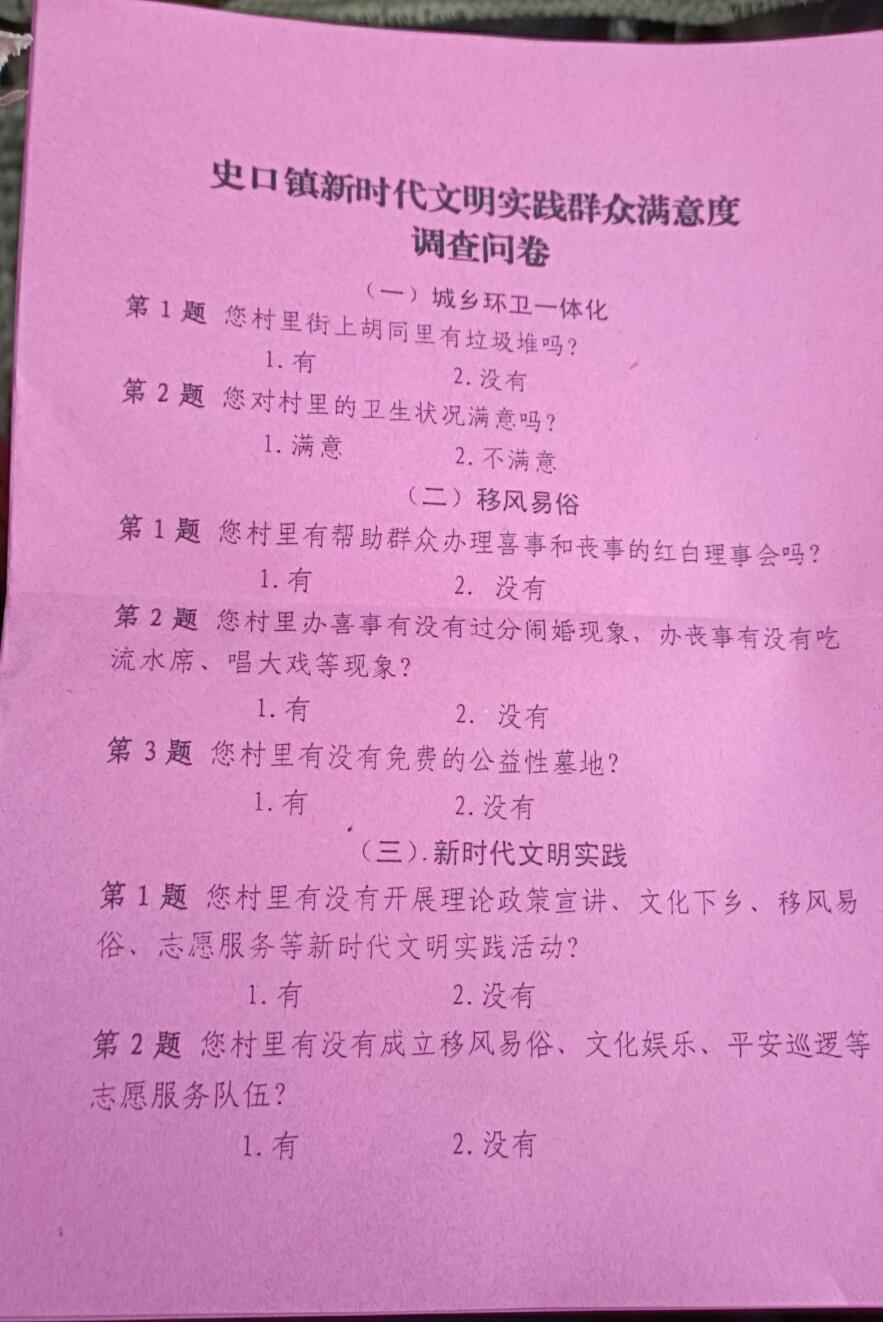 史口镇新时代文明实践群众满意度
调查问卷
（一）城乡环卫一体化
第 1 题 您村里街上胡同里有垃圾堆吗？
1. 有 2. 没有
第 2 题 您对村里的卫生状况满意吗？
1. 满意 2. 不满意
（二）移风易俗
第 1 题 您村里有帮助群众办理喜事和丧事的红白理事会吗？
1. 有 2. 没有
第 2 题 您村里办喜事有没有过分闹婚现象，办丧事有没有吃
流水席、唱大戏等现象？
1. 有 2. 没有
第 3 题 您村里有没有免费的公益性墓地？
1. 有 2. 没有
（三）.新时代文明实践
第 1 题 您村里有没有开展理论政策宣讲、文化下乡、移风易
俗、志愿服务等新时代文明实践活动？
1. 有 2. 没有
第 2 题 您村里有没有成立移风易俗、文化娱乐、平安巡逻等
志愿服务队伍？
1. 有 2. 没有